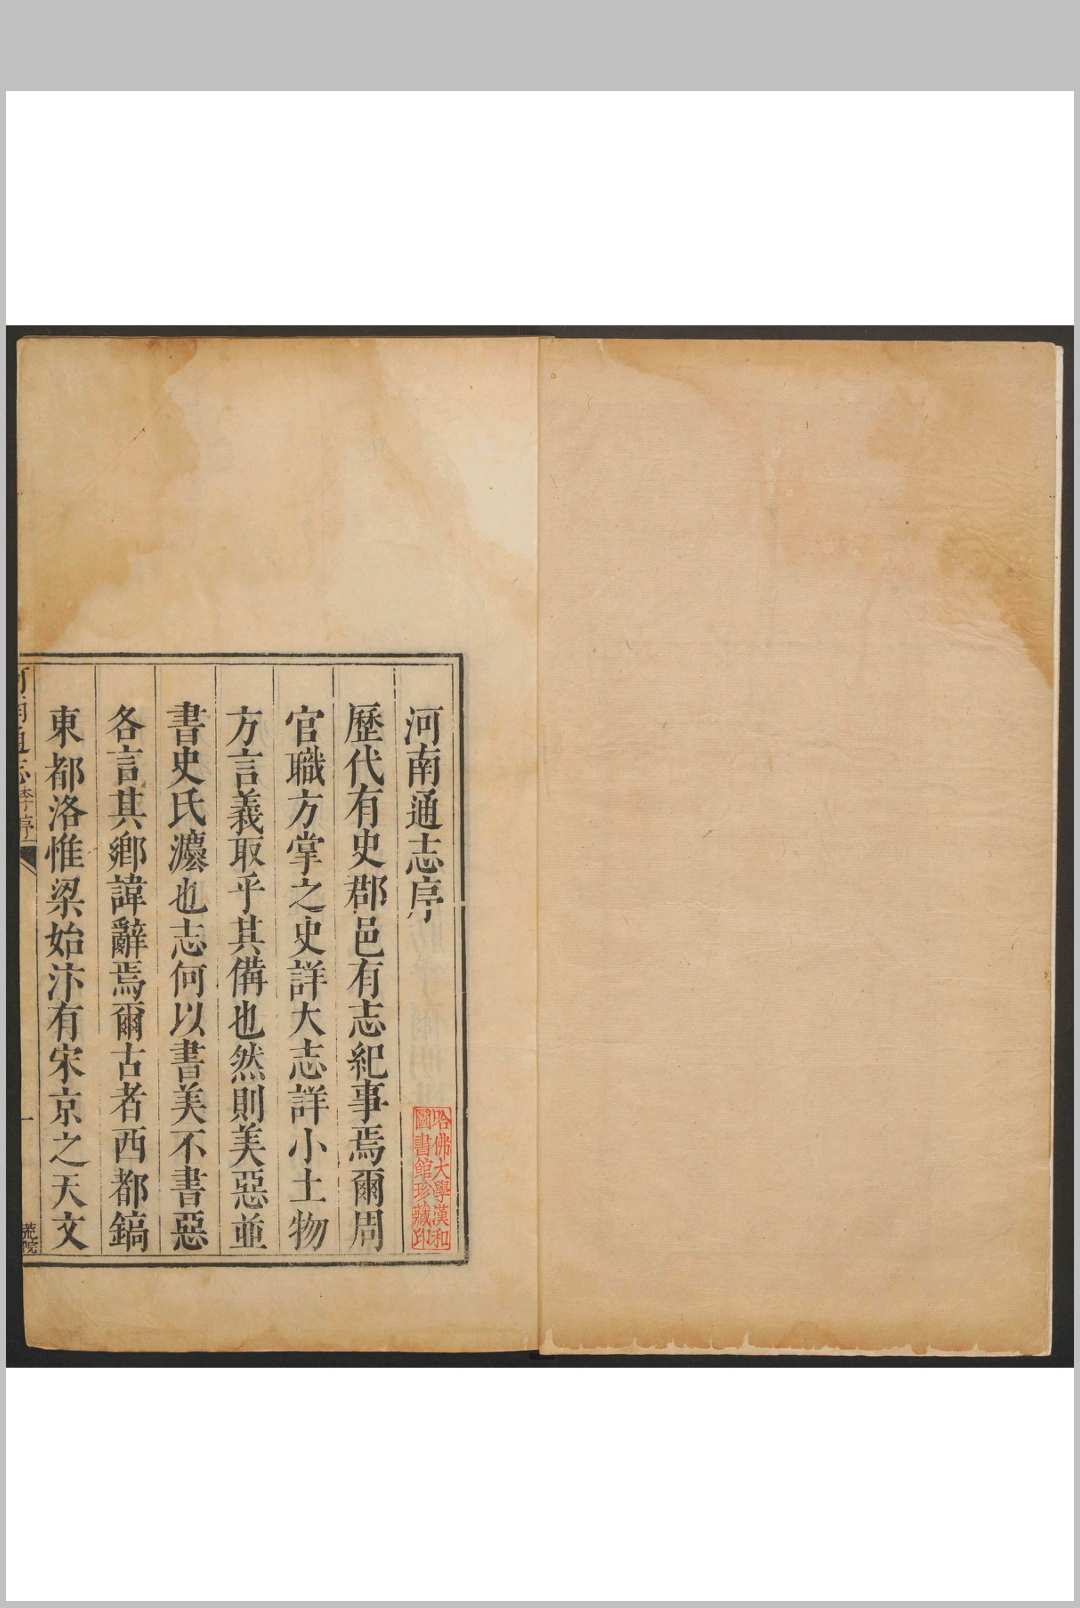 河南通志序
歷代有史郡邑有志紀事焉爾周
官職方掌之史詳大志詳小土物
方言義取乎其備也然則美惡並
書史氏灋也志何以書美不書惡
各言其鄉諱辭焉爾古者西都鎬
東都洛惟梁始汴有宋京之天文
河南通志李序
一
哈佛大學漢和
圖書館珍藏印